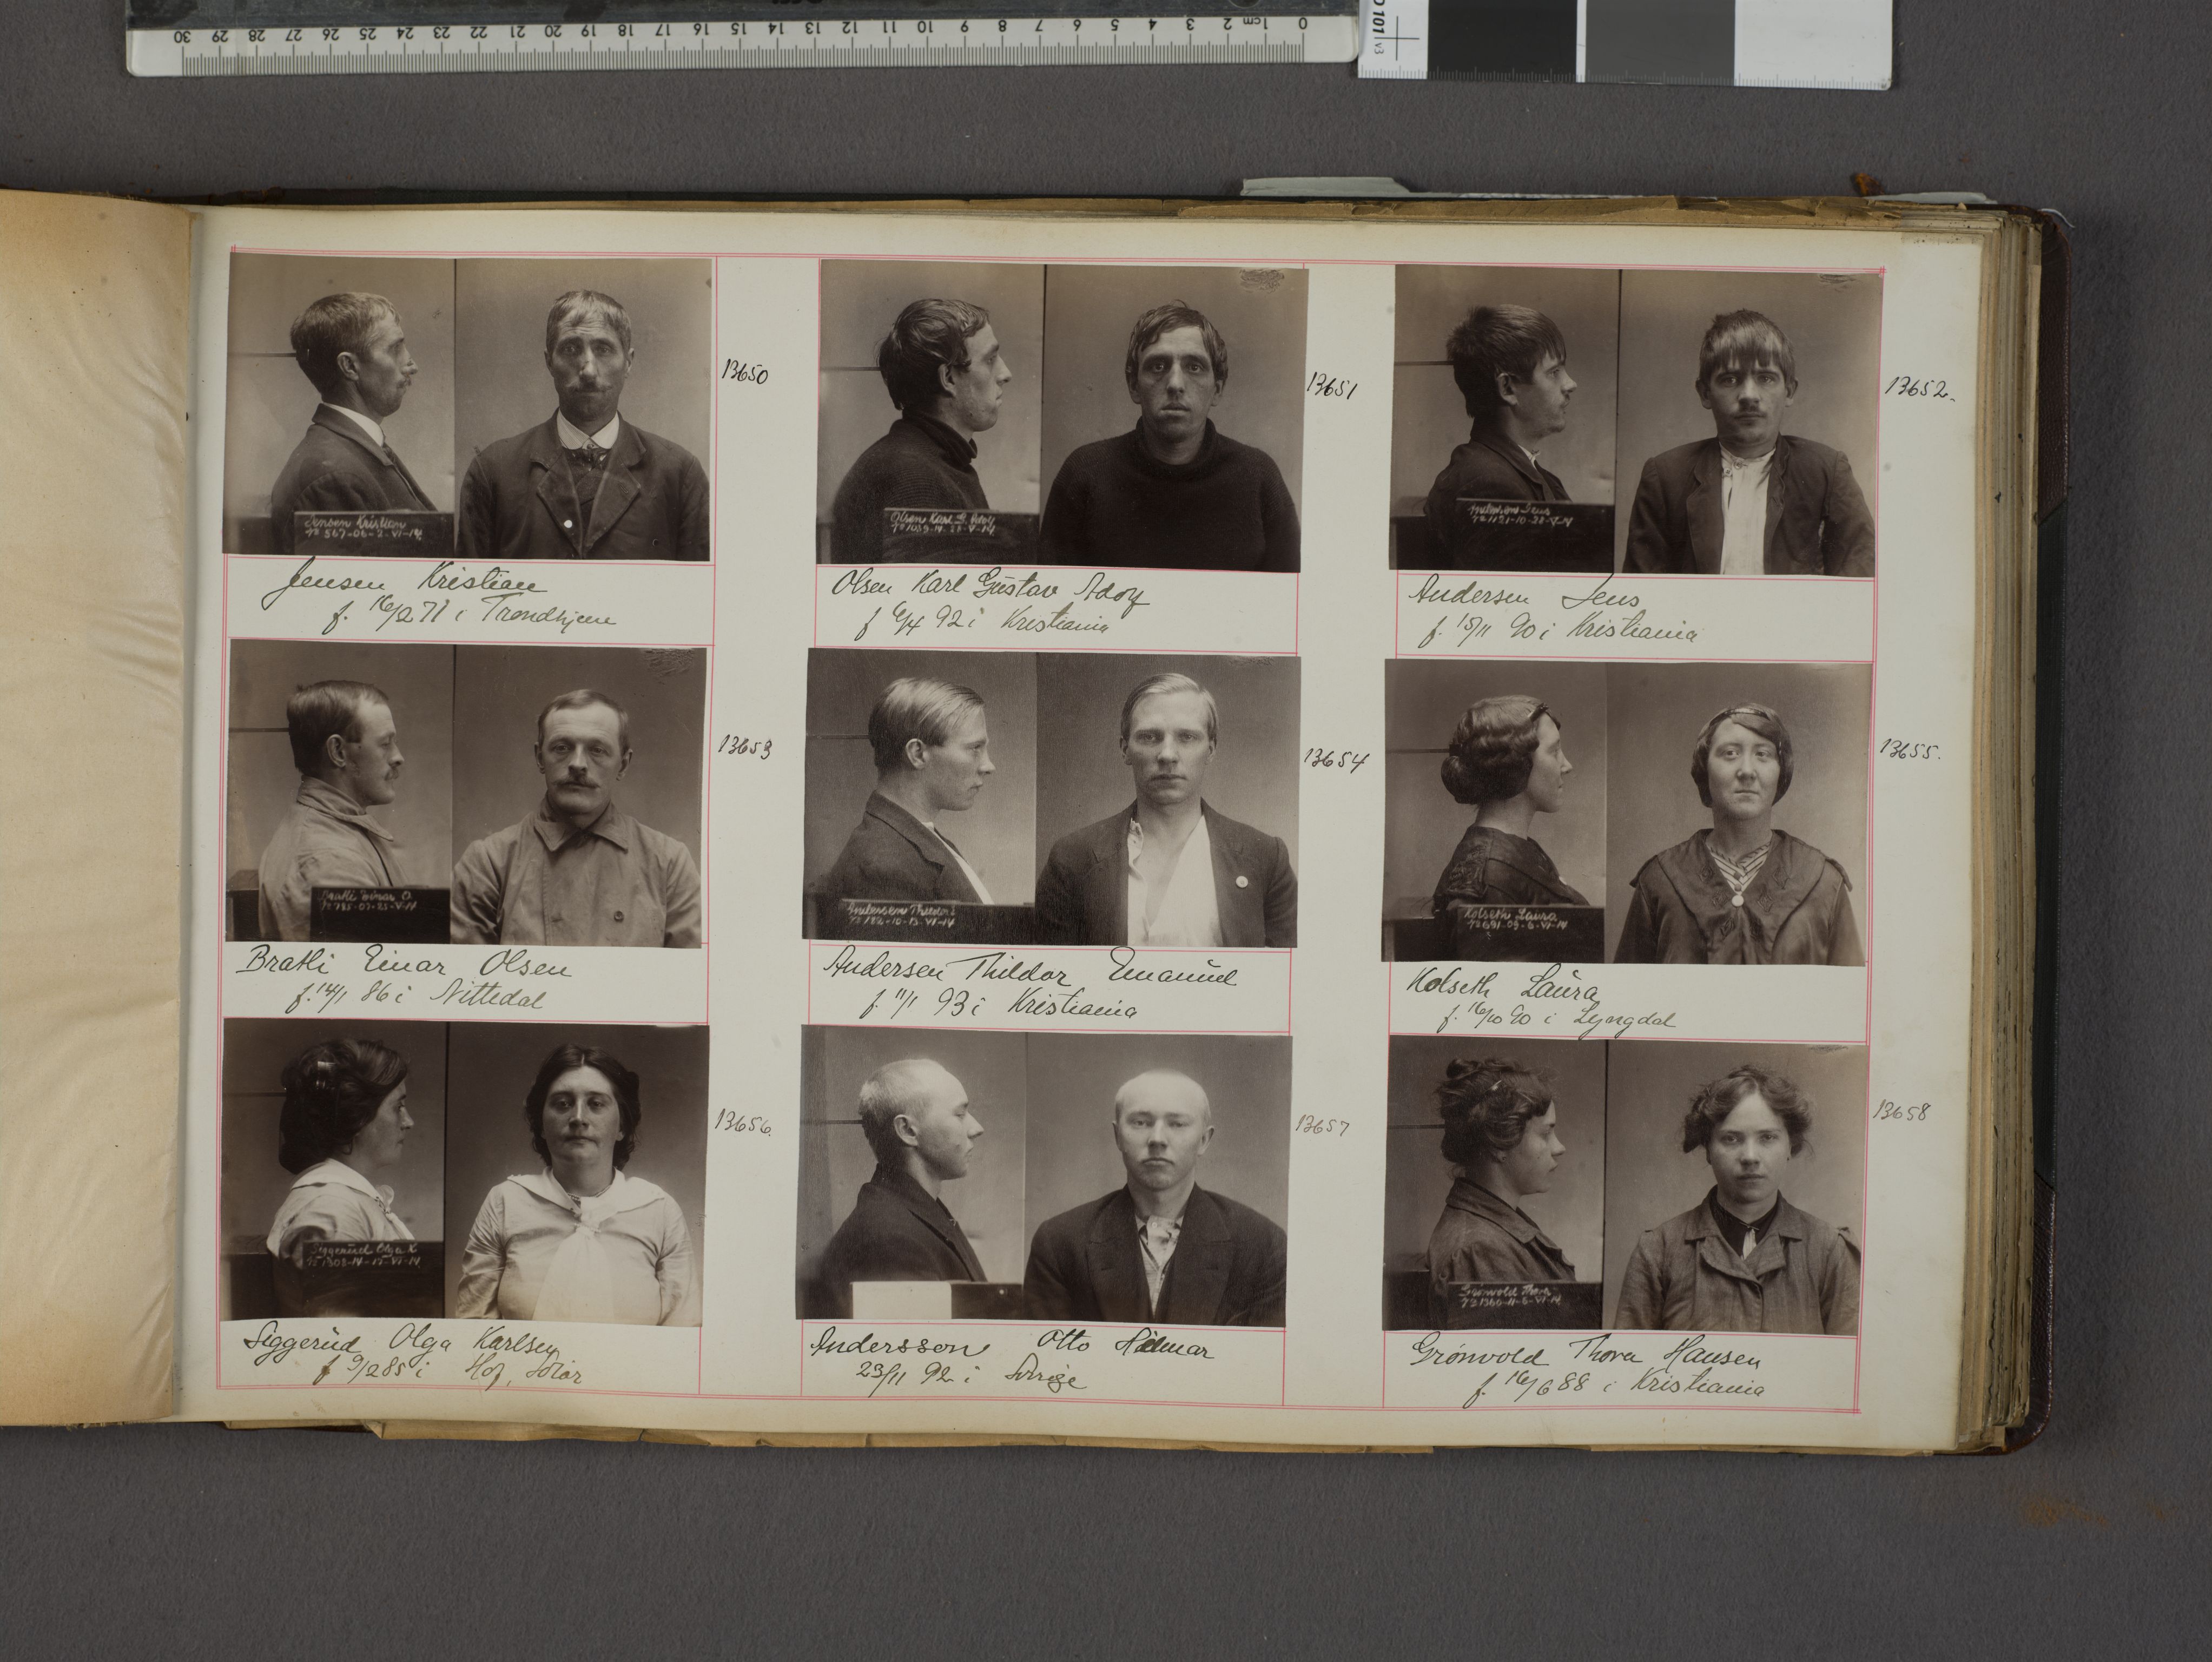 30 29 28 27 26 25 24 23 22 21 20 19 18 17 16 15 14 13 12 11 10 9 8 7 6 5 4 3 2 1cm 0
101 v3
13650
Jensen Kristian
Nº 567-06-2-VI-14
Jensen Kristian
f. 16/2 71 i Trondhjem
13651
Olsen Karl G. Adolf
Olsen Karl Gustav Adolf
f 6/4 92 i Kristiania
13652.
Andersen Jens
Nº 1121-10-28-V-14
Andersen Jens
f. 15/11 90 i Kristiania
13653
Bratli Einar O.
Nº 785-07-25-V-14
Bratli Einar Olsen
f. 14/1 86 i Nittedal
13654
Andersen Thildor E
Nº 182-10-13-VI-14
Andersen Thildor Emanuel
f. 11/1 93 i Kristiania
13655.
Kolseth Laura
Nº 691-09-6-VI-14
Kolseth Laura
f. 16/10 90 i Lyngdal
13656.
Siggerud Olga K
Nº 1308-14-15-VI-14
Siggerud Olga Karlsen
f 9/2 85 i Hof, Solør
13657
Andersson Otto Hilmar
23/11 92 i Sverige
13658
Grønvold Thora
Nº 1360-11-6-VI-14
Grønvold Thora Hansen
f. 16/6 88 i Kristiania